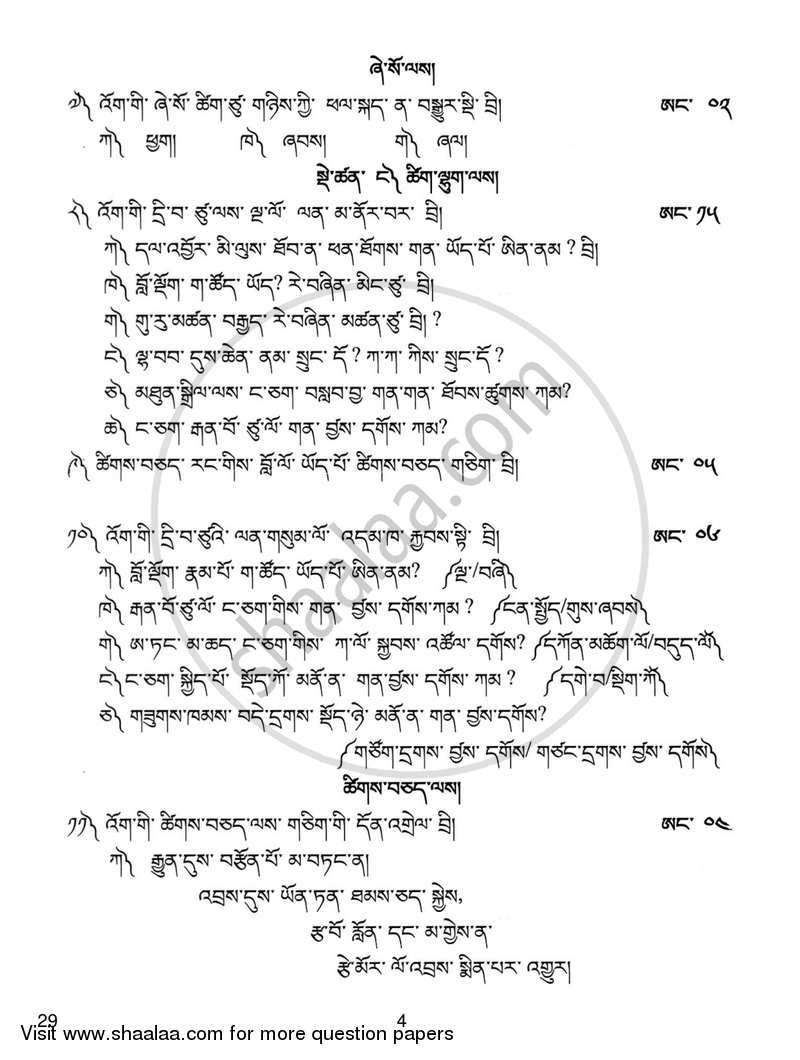 ཞེ་སོ་ལས།
༧༽ འོག་གི་ ཞེ་སོ་ ཚིག་ཙུ་ གཉིས་ཀྱི་ ཕལ་སྐད་ ན་ བསྒྱུར་སྡི་ བྲི། ཨང་ ༠༢
ཀ༽ ཕྱག། ཁ༽ ཞབས། ག༽ ཞལ།
སྡེ་ཚན་ ང༽ ཚིག་ལྷུག་ལས།
༨༽ འོག་གི་ དྲི་བ་ ཙུ་ལས་ ལྔ་ལོ་ ལན་ མ་ནོར་བར་ བྲི། ཨང་ ༡༥
ཀ༽ དལ་འབྱོར་ མི་ལུས་ ཐོབ་ན་ ཕན་ཐོགས་ གན་ ཡོད་པོ་ ཨིན་ནམ ? བྲི།
ཁ༽ བློ་ལྡོག་ ག་ཚོད་ ཡོད? རེ་བཞིན་ མིང་ཙུ་ བྲི།
ག༽ གུ་རུ་མཚན་ བརྒྱད་ རེ་བཞིན་ མཚན་ཙུ་ བྲི། ?
ང༽ ལྷ་བབ་ དུས་ཆེན་ ནམ་ སྲུང་ དོ ? ཀ་ཀ་ ཀིས་ སྲུང་དོ ?
ཅ༽ མཐུན་སྒྲིལ་ལས་ ང་ཅག་ བསླབ་བྱ་ གན་གན་ ཐོབས་ཚུགས་ ཀམ?
ཆ༽ ང་ཅག་ རྒན་བོ་ ཙུ་ལོ་ གན་ བྱས་ དགོས་ ཀམ?
༩༽ ཚིགས་བཅད་ རང་གིས་ བློ་ལོ་ ཡོད་པོ་ ཚིགས་བཅད་ གཅིག་ བྲི། ཨང་ ༠༥
༡༠༽ འོག་གི་ དྲི་བ་ཙུའི་ ལན་གསུམ་ལོ་ འདམ་ཁ་ རྒྱབས་སྟི་ བྲི། ཨང་ ༠༦
ཀ༽ བློ་ལྡོག་ རྣམ་པོ་ ག་ཚོད་ ཡོད་པོ་ ཨིན་ནམ? ༼ལྔ་/བཞི༽
ཁ༽ རྒན་བོ་ཙུ་ལོ་ ང་ཅག་གིས་ གན་ བྱས་ དགོས་ཀམ ? ༼ངན་སྤྱོད/གུས་ཞབས༽
ག༽ ཨ་ཏང་ མ་ཆད་ ང་ཅག་གིས་ ཀ་ལོ་ སྐྱབས་ འཚོལ་ དགོས? ༼དཀོན་མཆོག་ལོ/བདུད་ལོ༽
ང༽ ང་ཅག་ སྐྱིད་པོ་ སྡོད་ཀོ་ མནོ་ན་ གན་བྱས་ དགོས་ ཀམ ? ༼དགེ་བ/སྡིག་ཀོ༽
ཅ༽ གཟུགས་ཁམས་ བདེ་དྲགས་ སྡོད་ཉེ་ མནོ་ན་ གན་ བྱས་དགོས?
༼གཙོག་དྲགས་ བྱས་ དགོས/ གཙང་དྲགས་ བྱས་ དགོས༽
ཚིགས་བཅད་ལས།
༡༡༽ འོག་གི་ ཚིགས་བཅད་ལས་ གཅིག་གི་ དོན་འགྲེལ་ བྲི། ཨང་ ༠༤
ཀ༽ རྒྱུན་དུས་ བརྩོན་པོ་ མ་བཏང་ན།
འབྲས་དུས་ ཡོན་ཏན་ ཐམས་ཅད་ སྐྱེས,
རྩ་བོ་ རློན་ དང་ མ་གྱེས་ན་
རྩེ་མོར་ ལོ་འབྲས་ སྨིན་པར་ འགྱུར།
29 4
Visit www.shaalaa.com for more question papers
shaalaa.com